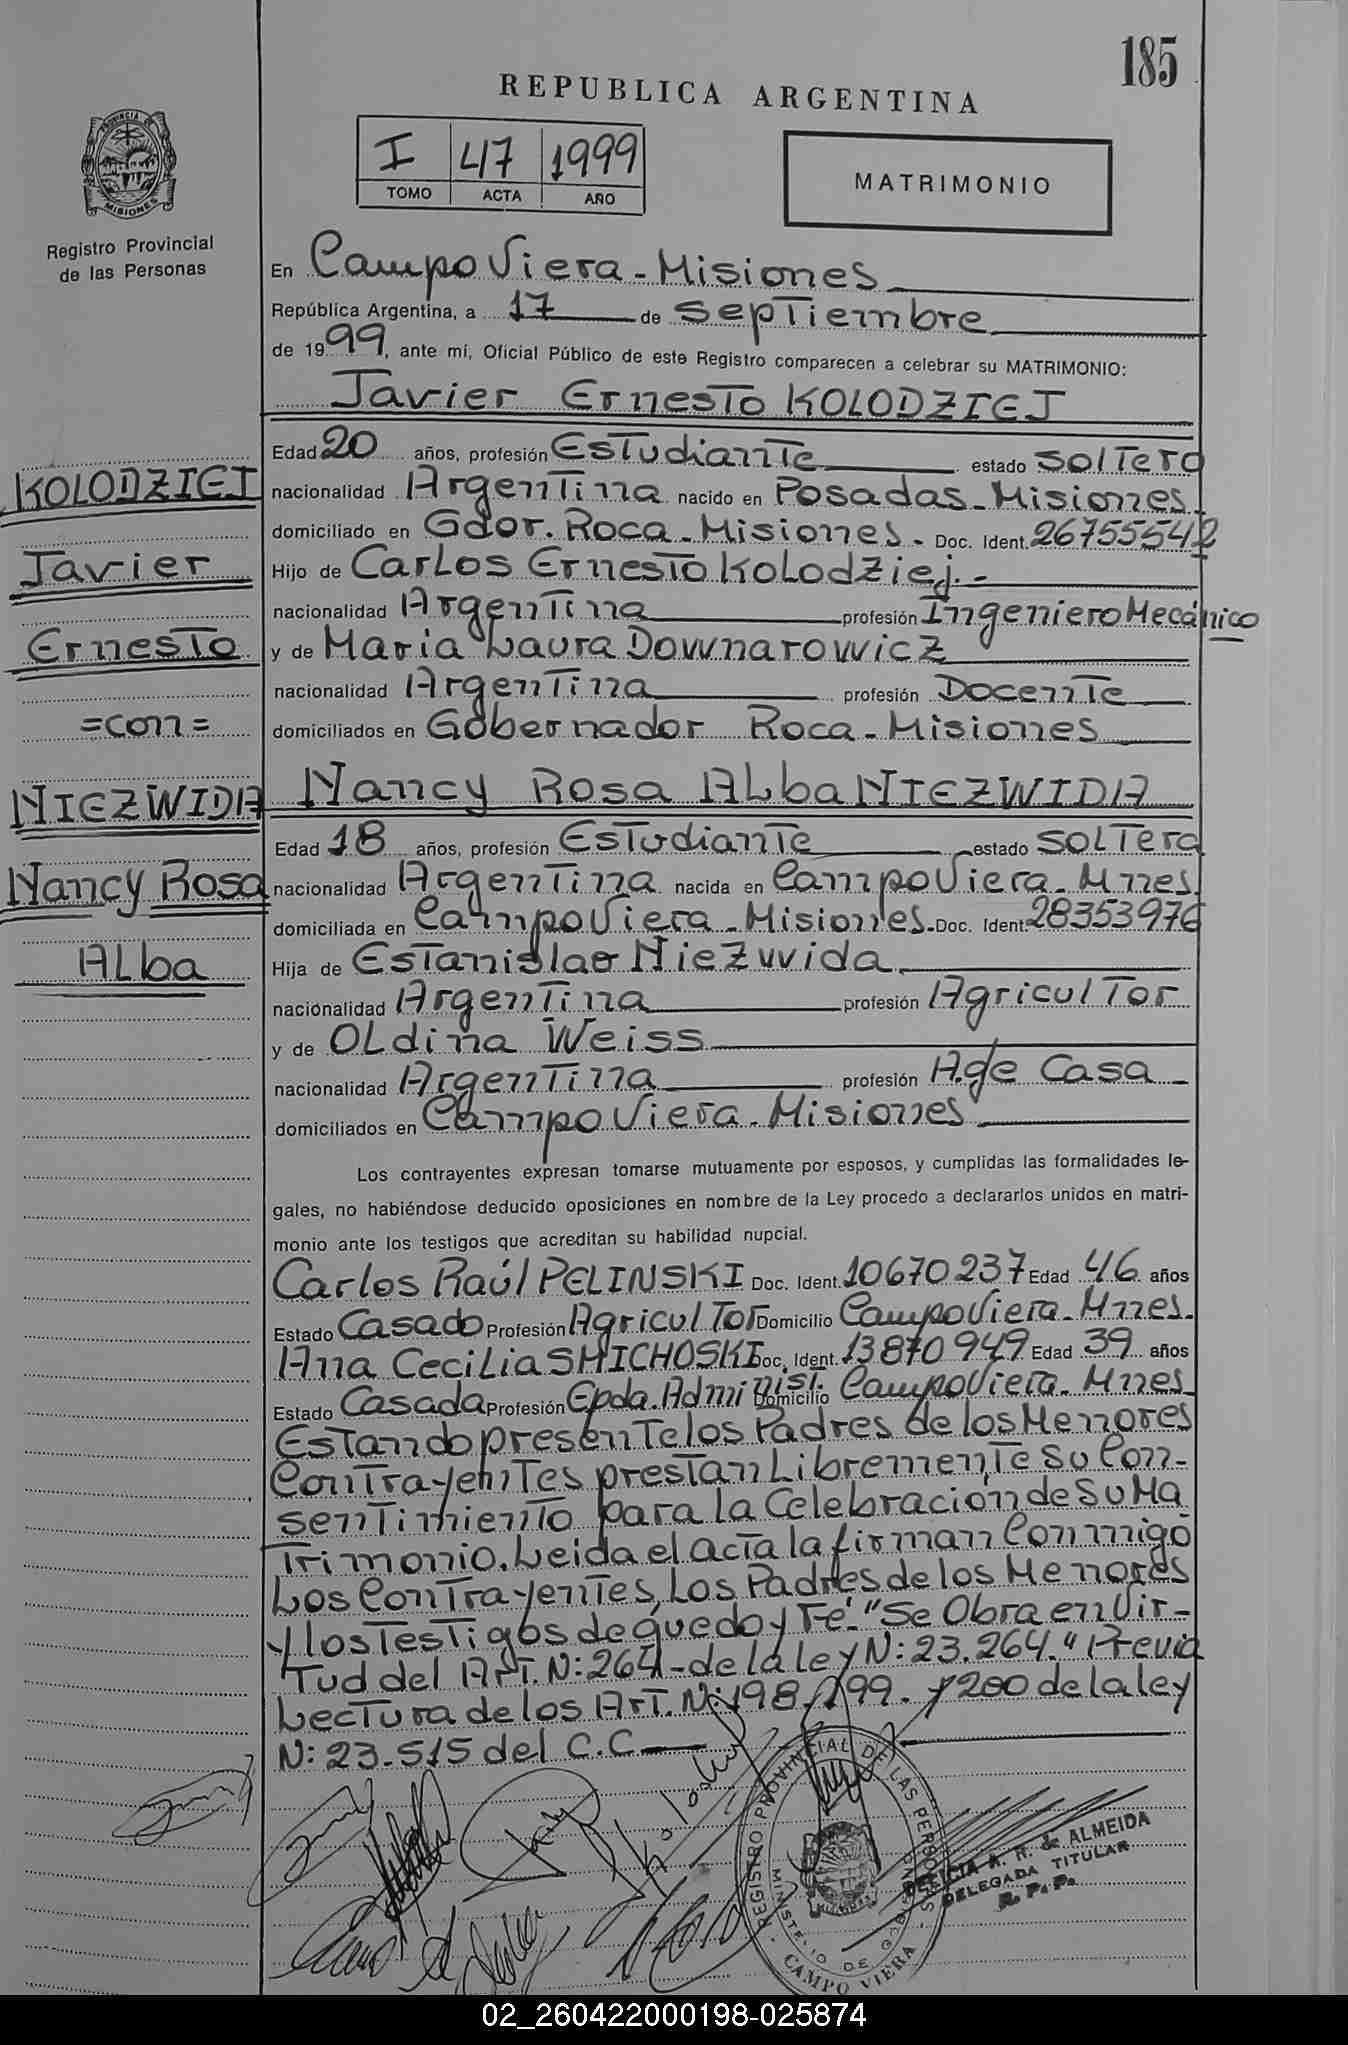 185
REPUBLICA ARGENTINA
I 47 1999
TOMO ACTA AÑO
MATRIMONIO
PROVINCIA DE
MISIONES
Registro Provincial
de las Personas
En Campo Viera - Misiones
República Argentina, a 17 de septiembre
de 1999, ante mí, Oficial Público de este Registro comparecen a celebrar su MATRIMONIO:
Javier Ernesto KOLODZIEJ
Edad 20 años, profesión Estudiante estado soltero
nacionalidad Argentina nacido en Posadas - Misiones
domiciliado en Gdor. Roca - Misiones - Doc. Ident. 26755542
Hijo de Carlos Ernesto Kolodziej. -
nacionalidad Argentina profesión Ingeniero Mecánico
y de Maria Laura Downarowicz
nacionalidad Argentina profesión Docente
domiciliados en Gobernador Roca - Misiones
KOLODZIEJ
Javier
Ernesto
=con=
NIEZWIDA
Nancy Rosa
Alba
Nancy Rosa Alba NIEZWIDA
Edad 18 años, profesión Estudiante estado soltera
nacionalidad Argentina nacida en Campo Viera - Mnes.
domiciliada en Campo Viera - Misiones - Doc. Ident. 28353976
Hija de Estanislao Niezwida
nacionalidad Argentina profesión Agricultor
y de Oldina Weiss
nacionalidad Argentina profesión A. de Casa
domiciliados en Campo Viera - Misiones
Los contrayentes expresan tomarse mutuamente por esposos, y cumplidas las formalidades le-
gales, no habiéndose deducido oposiciones en nombre de la Ley procedo a declararlos unidos en matri-
monio ante los testigos que acreditan su habilidad nupcial.
Carlos Raúl PELINSKI Doc. Ident. 10670237 Edad 46 años
Estado Casado Profesión Agricultor Domicilio Campo Viera - Mnes.
Ana Cecilia SMICHOSKI Doc. Ident. 13870949 Edad 39 años
Estado Casada Profesión Epda. Administ. Domicilio Campo Viera - Mnes
Estando presente los Padres de los Menores
Contrayentes prestan Libremente su Con-
sentimiento para la Celebración de su Ma
trimonio. Leida el acta la firman Conmigo
Los Contrayentes, Los Padres de los Menores
y los Testigos de que doy Fé. "Se Obra en Vir-
tud del Art. N: 264 - de la ley N: 23.264." Previa
Lectura de los Art. N: 198, 199. y 200 de la ley
N: 23.515 del C.C.
REGISTRO PROVINCIAL DE LAS PERSONAS
MINISTERIO DE GOBIERNO
CAMPO VIERA
A. R. de ALMEIDA
DELEGADA TITULAR
R. P. P.
02_260422000198-025874